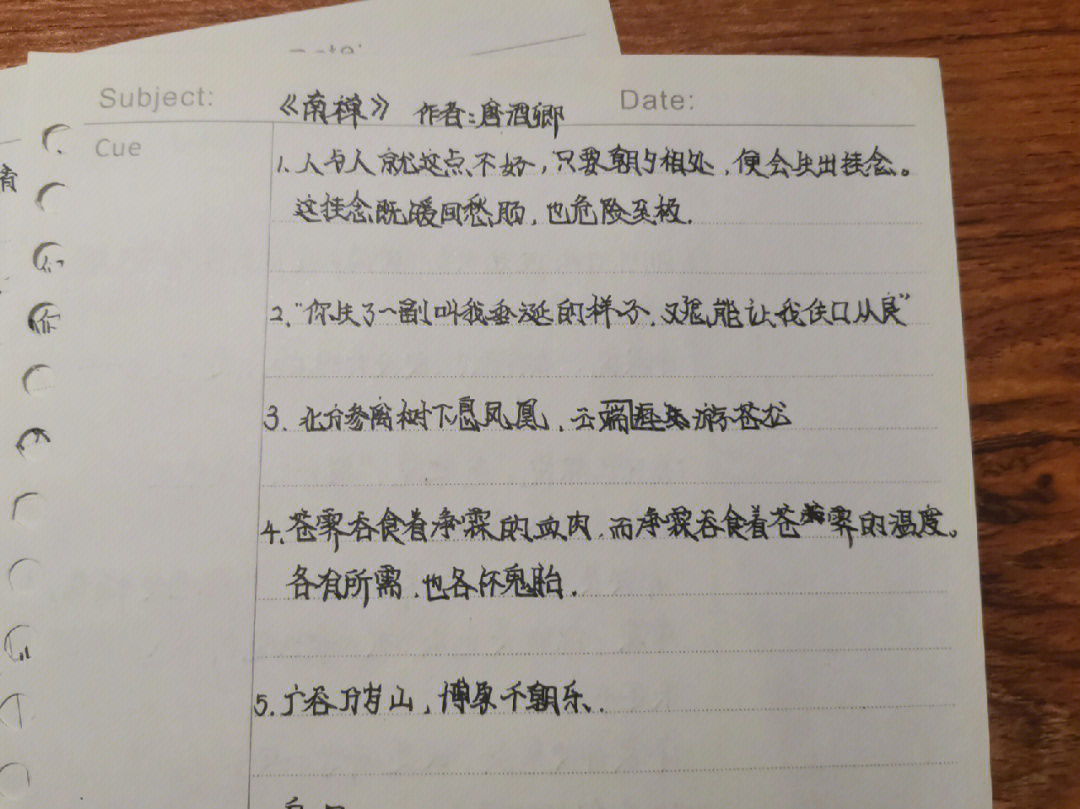 Subject: 《南禅》 作者:唐酒卿 Date:
Cue
1. 人与人就这点不好,只要朝夕相处,便会生出挂念。
这挂念既暖回愁肠,也危险至极.
2. "你生了一副叫我垂涎的样子,又怎能让我住口从良"
3. 北方参离树下息凤凰,云端 游苍龙
4. 苍霁吞食着净霖的血肉,而净霖吞食着苍霁的温度。
各有所需,也各怀鬼胎.
5. 广吞万岁山,博取千朝乐.